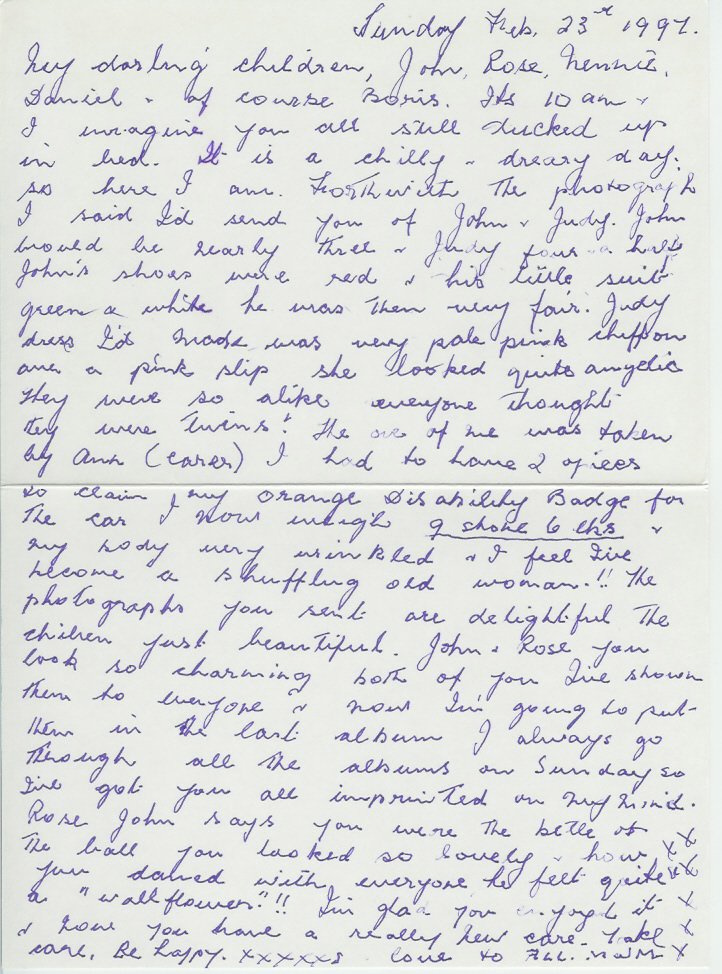 Sunday Feb. 23rd 1997.
My darling children, John, Rose, Nennie,
Daniel & of course Boris. Its 10 am &
I imagine you all still tucked up
in bed. It is a chilly & dreary day.
so here I am. Forthwith the photograph
I said I'd send you of John & Judy. John
would be nearly three & Judy four & a half
John's shoes were red & his little suit
green & white he was then very fair. Judy
dress I'd made was very pale pink chiffon
over a pink slip she looked quite angelic
They were so alike everyone thought
they were twins! The one of me was taken
by Ann (carer) I had to have 2 of
to claim my Orange Disability Badge for
the car I now weigh 9 stone 6 lbs &
my body very wrinkled & I feel I've
become a shuffling old woman.!! The
photographs you sent are delightful The
children just beautiful. John & Rose you
look so charming both of you I've shown
them to everyone & now I'm going to put
them in the last album I always go
through all the albums on Sunday so
I've got you all imprinted on my mind.
Rose John says you were the belle of
the ball you looked so lovely & how
you danced with everyone he felt quite
a "wallflower"!!! I'm glad you enjoyed it
& now you have a really new care. Take
care. Be happy. xxxxxx love to ALL. MUM
x x
x x
x x
x
x
x